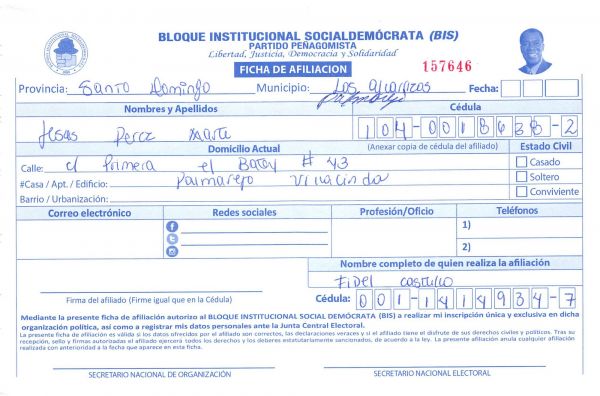 BLOQUE INSTITUCIONAL SOCIALDEMÓCRATA (BIS)
PARTIDO PEÑAGOMISTA
Libertad, Justicia, Democracia y Solidaridad
FICHA DE AFILIACION
157646
Provincia: Santo Domingo Municipio: Los alcarrizos Fecha:
Palmarejo
Nombres y Apellidos Cédula
Jesus Perez Marte 104-0018638-2
Domicilio Actual (Anexar copia de cédula del afiliado) Estado Civil
Calle: c/ Primera el Batey # 43 Casado
#Casa / Apt. / Edificio: Palmarejo Villa Linda Soltero
Barrio / Urbanización: Conviviente
Correo electrónico Redes sociales Profesión/Oficio Teléfonos
1)
2)
Nombre completo de quien realiza la afiliación
Fidel castillo
Firma del afiliado (Firme igual que en la Cédula) Cédula: 001-1414934-7
Mediante la presente ficha de afiliación autorizo al BLOQUE INSTITUCIONAL SOCIAL DEMÓCRATA (BIS) a realizar mi inscripción única y exclusiva en dicha
organización política, así como a registrar mis datos personales ante la Junta Central Electoral.
La presente ficha de afiliación es válida si los datos ofrecidos por el afiliado son correctos, las declaraciones veraces y si el afiliado tiene el disfrute de sus derechos civiles y políticos. Tras su
recepción, sello y firmas autorizadas el afiliado ejercerá todos los derechos y los deberes estatutariamente sancionados, de acuerdo a la ley. La presente afiliación anula cualquier afiliación
realizada con anterioridad a la fecha que aparece en esta ficha.
SECRETARIO NACIONAL DE ORGANIZACIÓN SECRETARIO NACIONAL ELECTORAL